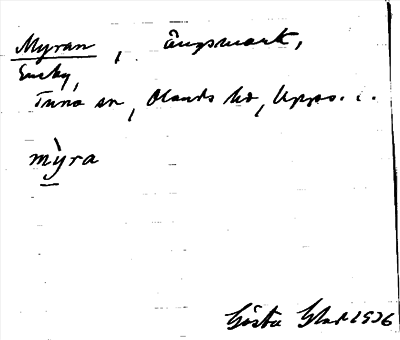 Myran, Ängsmark,
Tuna sn, Olands hd, Upps. l.
mỳra
Gösta 1936